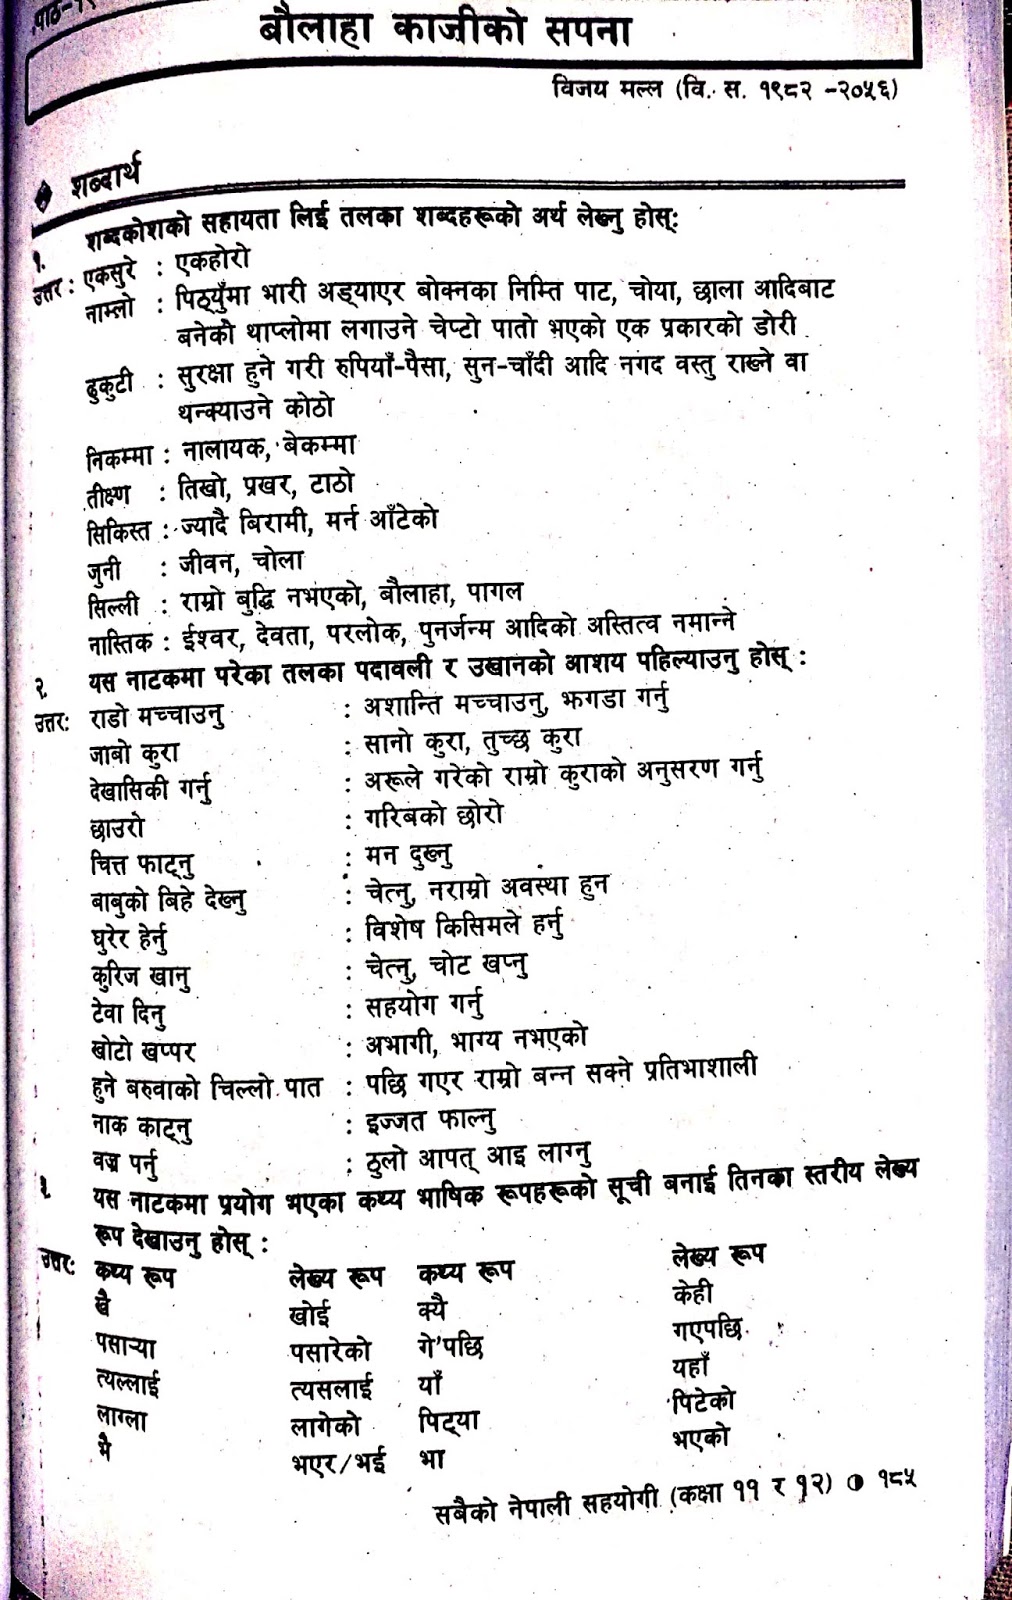 पाठ-
बौलाहा काजीको सपना
विजय मल्ल (वि. स. १९८२ -२०५६)
शब्दार्थ
१. शब्दकोशको सहायता लिई तलका शब्दहरूको अर्थ लेख्नु होस्:
उत्तर: एकसुरे : एकहोरो
नाम्लो : पिठ्युँमा भारी अड्याएर बोक्नका निम्ति पाट, चोया, छाला आदिबाट
बनेको थाप्लोमा लगाउने चेप्टो पातो भएको एक प्रकारको डोरी
ढुकुटी : सुरक्षा हुने गरी रुपियाँ-पैसा, सुन-चाँदी आदि नगद वस्तु राख्ने वा
थन्क्याउने कोठो
निकम्मा : नालायक, बेकम्मा
तीक्ष्ण : तिखो, प्रखर, टाठो
सिकिस्त : ज्यादै बिरामी, मर्न आँटेको
जुनी : जीवन, चोला
सिल्ली : राम्रो बुद्धि नभएको, बौलाहा, पागल
नास्तिक : ईश्वर, देवता, परलोक, पुनर्जन्म आदिको अस्तित्व नमान्ने
२. यस नाटकमा परेका तलका पदावली र उखानको आशय पहिल्याउनु होस् :
उत्तर: राडो मच्चाउनु : अशान्ति मच्चाउनु, झगडा गर्नु
जाबो कुरा : सानो कुरा, तुच्छ कुरा
देखासिकी गर्नु : अरूले गरेको राम्रो कुराको अनुसरण गर्नु
छाउरो : गरिबको छोरो
चित्त फाट्नु : मन दुख्नु
बाबुको बिहे देख्नु : चेत्नु, नराम्रो अवस्था हुन
घुरेर हेर्नु : विशेष किसिमले हर्नु
कुरिज खानु : चेत्नु, चोट खप्नु
टेवा दिनु : सहयोग गर्नु
खोटो खप्पर : अभागी, भाग्य नभएको
हुने बरुवाको चिल्लो पात : पछि गएर राम्रो बन्न सक्ने प्रतिभाशाली
नाक काट्नु : इज्जत फाल्नु
वज्र पर्नु : ठुलो आपत् आइ लाग्नु
३. यस नाटकमा प्रयोग भएका कथ्य भाषिक रूपहरूको सूची बनाई तिनका स्तरीय लेख्य
रूप देखाउनु होस् :
उत्तर: कथ्य रूप लेख्य रूप कथ्य रूप लेख्य रूप
खै खोई क्यै केही
पसाऱ्या पसारेको गे'पछि गएपछि
त्यल्लाई त्यसलाई याँ यहाँ
लाग्ला लागेको पिट्या पिटेको
भै भएर/भई भा भएको
सबैको नेपाली सहयोगी (कक्षा ११ र १२) ◑ १८५